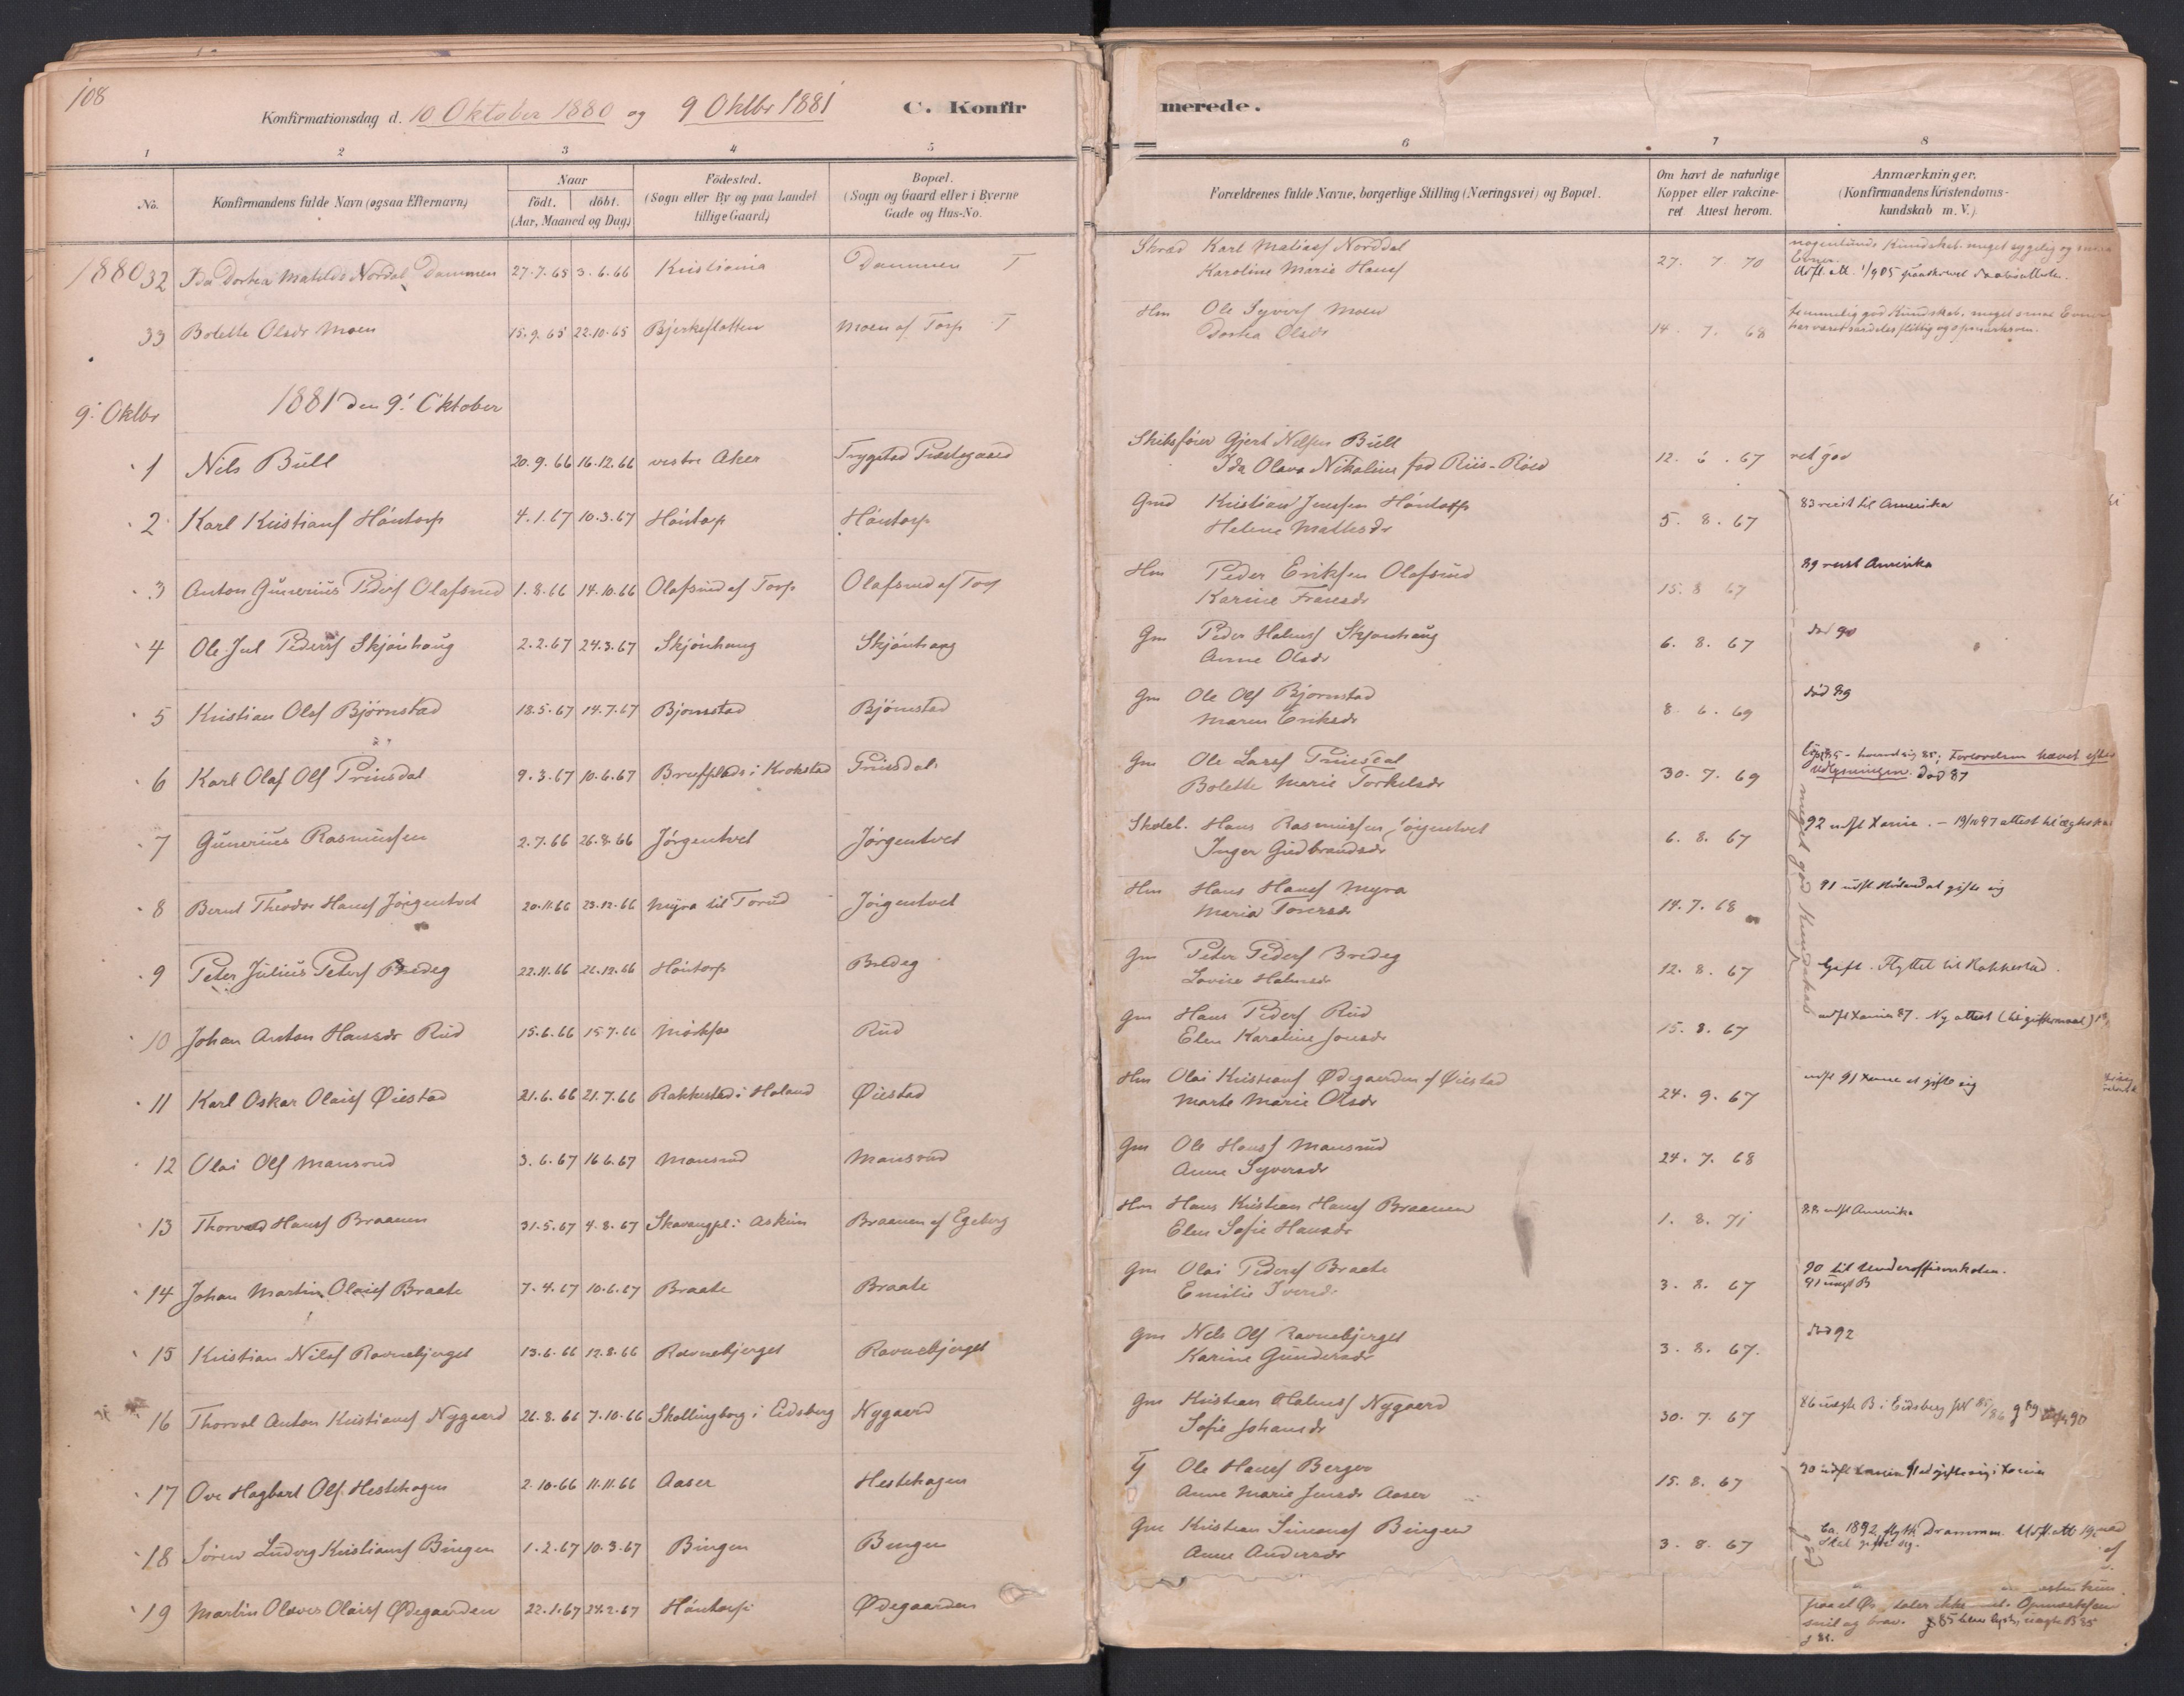 108
Konfirmationsdag d. 10 Oktober 1880 og 9 Oktbr 1881 C. Konfirmerede.
1 2 3 4 5 6 7 8
No.
Konfirmandens fulde Navn (ogsaa Efternavn)
Naar
födt. döbt.
(Aar, Maaned og Dag)
Födested.
(Sogn eller By og paa Landet
tillige Gaard)
Bopæl.
(Sogn og Gaard eller i Byerne
Gade og Hus-No.
Forældrenes fulde Navne, borgerlige Stilling (Næringsvei) og Bopæl.
Om havt de naturlige
Kopper eller vakcine-
ret Attest herom.
Anmærkninger.
(Konfirmandens Kristendoms-
kundskab m. V.)
1880 32 Ida Dortea Matilde Nordal Dammen 27.7.65 3.6.66 Kristiania Dammen T
Karl Matiass Norddal
Karoline Marie Hansd
27. 7 70
nogenlunde Kundskab. meget sygelig og
33 Bolette Olsdr Moen 15.9.65 22.10.65 Bjerkesletten Moen af Torp T
Hm Ole Syvers Moen
Dortea Olsdr
14. 7. 68
temmelig god Kundskab, meget smaa Evner
har været særdeles flittig og opmærksom.
9. Oktbr 1881 den 9. Oktober
1 Nils Bull 20.9.66 16.12.66 vestre Aker Trygstad Præstegaard
Skibsfører Gjert Nilsen Bull
Ida Olava Nikoline fød Riis-Röed
12. 6. 67
ret god
2 Karl Kristians Höntorp 4.1.67 10.3.67 Höntorp Höntorp
Gmd Kristian Jensen Höntorp
Helene Mathisdr
5. 8. 67
83 reist til Amerika
3 Anton Gunerius Peders Olafsrud 1.8.66 14.10.66 Olafsrud af Torp Olafsrud af Torp
Hm Peder Eriksen Olafsrud
Karine Fransdr
15. 8 67
89 reist Amerika
4 Ole Jul Peders Skjönhaug 2.2.67 24.3.67 Skjönhaug Skjönhaug
Gm Peder Halvors Skjönhaug
Anne Olsdr
6. 8. 67
död 90
5 Kristian Ols Björnstad 18.5.67 14.7.67 Bjornstad Björnstad
Gm Ole Ols Bjørnstad
Maren Eriksdr
8. 6. 69
död 89
6 Karl Olaf Ols Prinsdal 9.3.67 10.6.67 i Krokstad Prinsdal
Gm Ole Lars Prinsdal
Bolette Marie Torkelsdr
30. 7. 69
död 87
7 Gunerius Rasmussen 2.7.66 26.8.66 Jörgentvet Jörgentvet
Skolel. Hans Rasmussen Jörgentvet
Inger Gudbrandsdr
6. 8. 67
92 udfl Xania. - 19/10 97 attest til ægteskab
8 Bernt Theodor Hans Jörgentvet 20.11.66 23.12.66 Myra til Torud Jörgentvet
Hm Hans Hans Myra
Maria Toversdr
14. 7. 68
91 udfl at gifte sig
9 Peter Julius Peters Bredeg 22.11.66 26.12.66 Höntorp Bredeg
Gm Peter Peders Bredeg
Lovise Halvorsdr
12. 8. 67
Gift. Flyttet til Rakkestad.
10 Johan Anton Hanssdr Rud 15.6.66 15.7.66 Rud
Gm Hans Peders Rud
Elen Karoline Jonsdr
15. 8. 67
udfl Xania 87. Ny attest (til giftermaal)
11 Karl Oskar Olais Øiestad 21.6.66 21.7.66 Rakkestad i Høland Øiestad
Hm Olai Kristians Ødegaarden af Øiestad
Marte Marie Olsdr
24. 9. 67
udfl 91 Xania at gifte sig
12 Olai Ols Mansrud 3.6.67 16.6.67 Mansrud Mansrud
Gm Ole Hans Mansrud
Anne Syversdr
24. 7. 68
13 Thorvald Hans Braanen 31.5.67 4.8.67 i Askim Braanen af Egeberg
Hm Hans Kristian Hans Braanen
Elen Sofie Hansdr
1. 8. 71
88 udfl Amerika
14 Johan Martin Olais Braate 7.4.67 10.6.67 Braate Braate
Gm Olai Peders Braate
Emilie
3. 8. 67
90 til Underoffisersskolen.
91 B
15 Kristian Nils Ravnebjerget 13.6.66 12.8.66 Ravnebjerget Ravnebjerget
Gm Nils Ols Ravnebjerget
Karine Gundersdr
3. 8. 67.
död 92
16 Thorval Anton Kristians Nygaard 26.8.66 7.10.66 Skollingborg i Eidsberg Nygaard
Gm Kristian Halvors Nygaard
Sofie Johansdr
30. 7. 67
86 B i Eidsberg
17 Ove Hagbart Ols. Hestehagen 2.10.66 11.11.66 Aaser Hestehagen
Tj Ole Hans Berger
Anne Marie Jensdr Aaser
15. 8. 67
90 udfl Xania 91 at gifte sig i Xania
18 Sören Ludvig Kristians Bingen 1.2.67 10.3.67 Bingen Bingen
Gm Kristian Simens Bingen
Anne Andersdr
3. 8. 67
Ca. 1892 flytt. Drammen.
Skal gifte sig.
19 Martin Olaves Olais Ødegaarden 22.1.67 24.2.67 Höntorp Ødegaarden
snil og brav.
meget god Kundskab
god